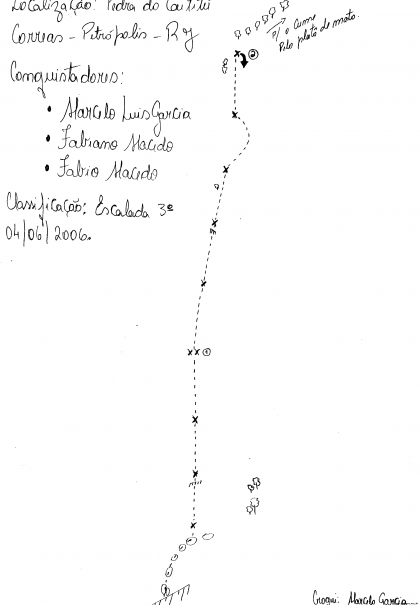 Localização: Pedra do Cuitití
Correas - Petrópolis - RJ
Conquistadores:
• Marcelo Luis Garcia
• Fabiano Macedo
• Fabio Macedo
Classificação: Escalada 3º
04/06/2006.
p/ o cume
Pelo platô de mato.
2
1
Croqui: Marcelo Garcia